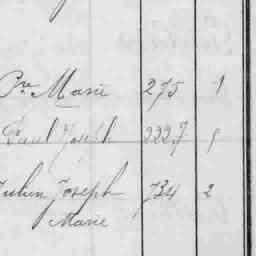 Marie 275 1
Paul Joseph 2227 1
Julien Joseph 734 2
Marie